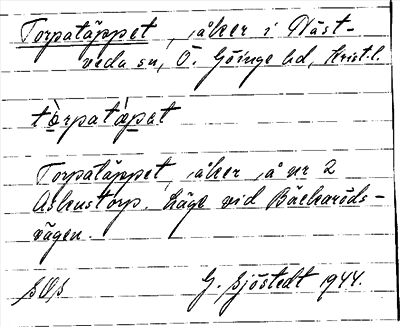 Torpatäppet, åker i Näst-
veda sn, Ö. Göinge hd, Krist. l.
tòrpatǻpat
Torpatäppet, åker å nr 2
Askustorp. Läge vid Bäckaröds-
vägen.
G. Sjöstedt 1944.